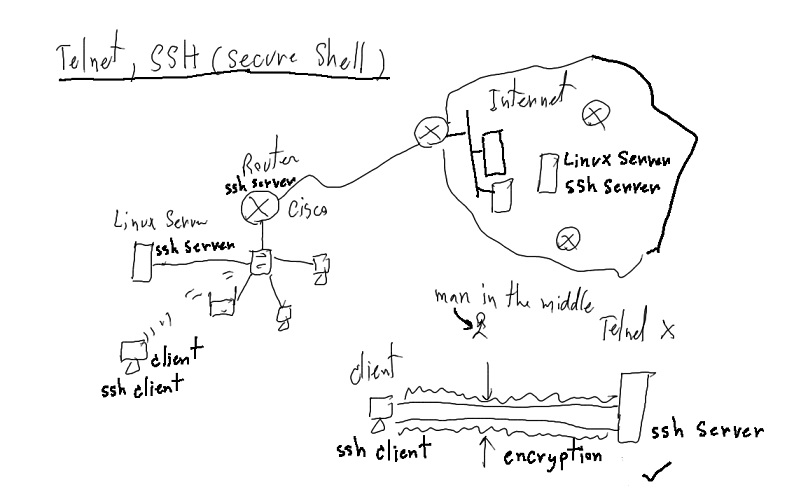 Telnet, SSH (Secure Shell)
Internet
Router
ssh server
Cisco
Linux Server
ssh server
Linux Server
SSh Server
man in the middle
Telnet x
client
ssh client
client
ssh client
encryption
ssh Server